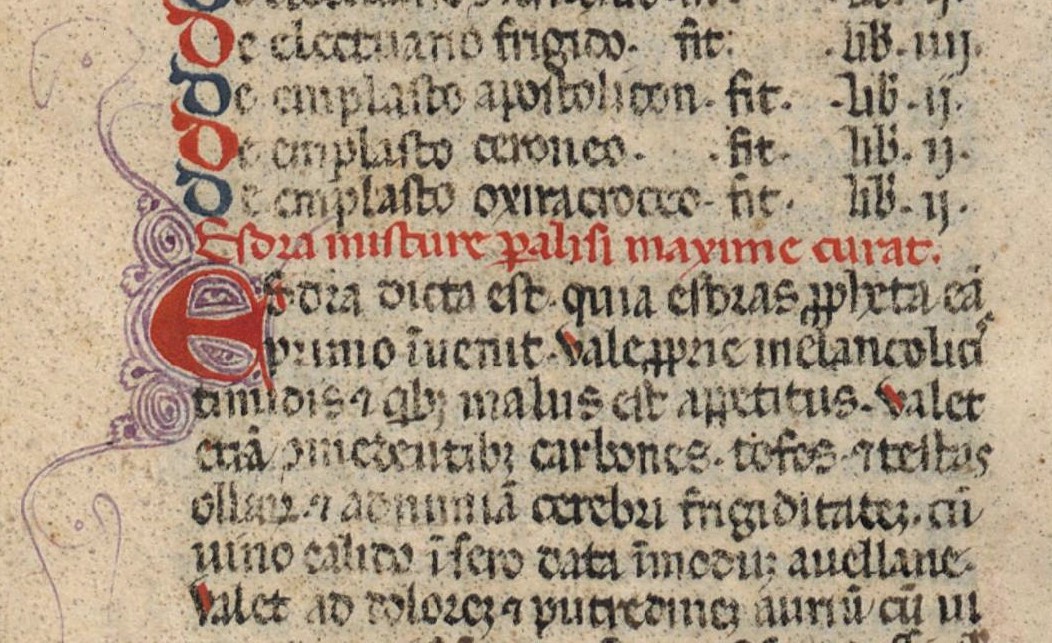 De electuario frigido. fit. .lib. iiij.
De emplasto apostolicon. fit. .lib. ij.
De emplasto ceroneo. .fit. lib. ij.
De emplasto oxiracroceo. fit. lib. ij.
Esdra misture ꝑalisi maxime curat.
Esdra dicta est. quia esdras ꝓpheta eā
primo īuenit. Vale ꝓprie melancolicis
timidis ⁊ qibꝫ malus est appetitus. Valet
etiā comedentibꝫ carbones. tofos. ⁊ testas
ollaꝝ. ⁊ ad nimiā cerebri frigiditateꝫ. cū
uino calido ī sero data ī moduꝫ auellane.
Valet ad doloreꝫ ⁊ putredineꝫ auriū cū ui